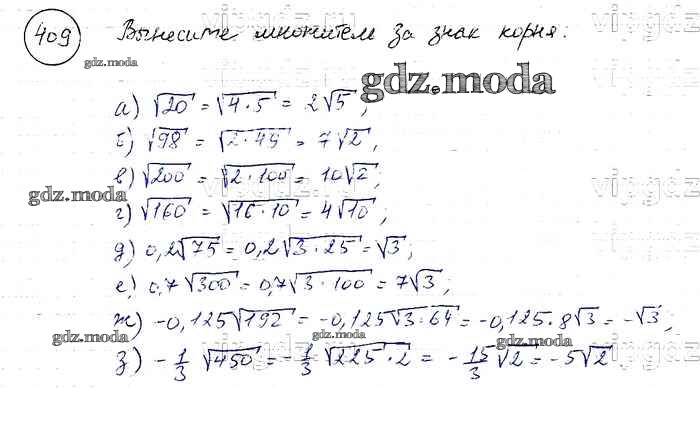 409 Вынесите множитель за знак корня:
gdz.moda
gdz.moda
а) √20 = √4·5 = 2√5,
б) √98 = √2·49 = 7√2,
в) √200 = √2·100 = 10√2;
gdz.moda
г) √160 = √16·10 = 4√10;
д) 0,2√75 = 0,2√3·25 = √3;
е) 0,7√300 = 0,7√3·100 = 7√3;
ж) -0,125√192 = -0,125√3·64 = -0,125·8√3 = -√3;
gdz.moda gdz.moda gdz.moda
з) -1/3 √450 = -1/3 √225·2 = -15/3 √2 = -5√2
vipgdz
vipgdz
vipgdz
vipgdz